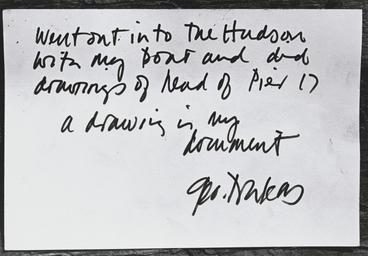 Went out into the Hudson
with my boat and did
drawings of head of Pier 17
a drawing is my
document
Geo.